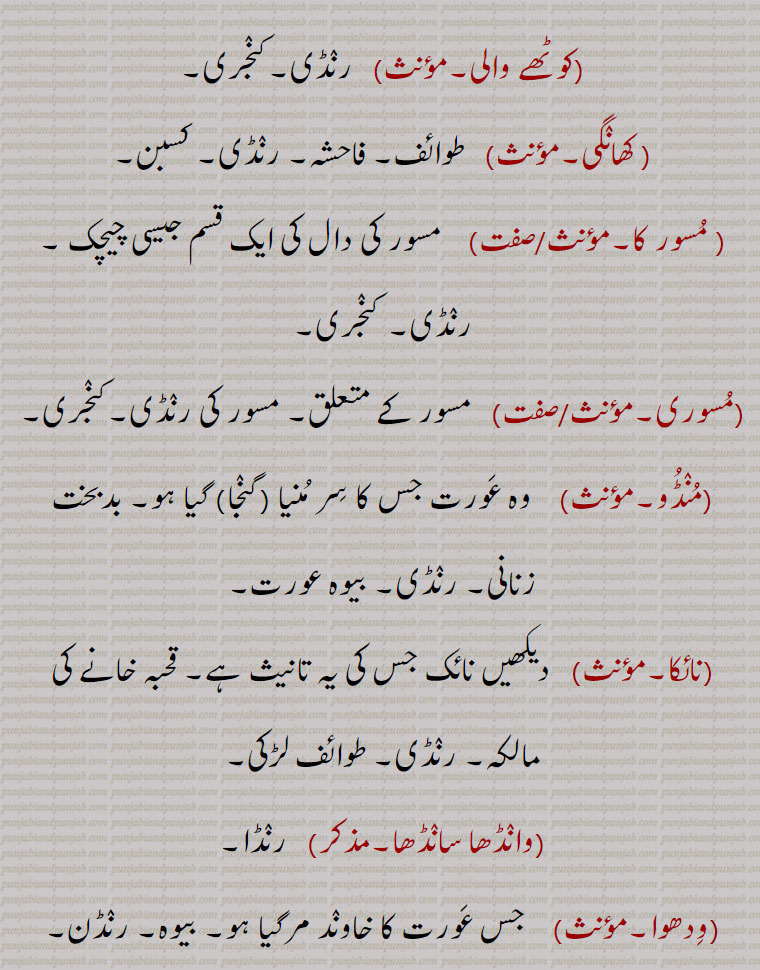 (کوٹھے والی۔مؤنث) رنڈی۔کنجری۔
(کھانگی۔مؤنث) طوائف۔ فاحشہ۔ رنڈی۔ کسبن۔
(مُسور کا۔مؤنث/صفت) مسور کی دال کی ایک قسم جیسی چیچک ۔
رنڈی۔ کنجری۔
(مُسوری۔مؤنث/صفت) مسور کے متعلق۔ مسور کی رنڈی۔کنجری۔
(مُنڈُو۔مؤنث) وہ عَورت جس کا سِر مُنیا (گنجا) گیا ہو۔ بدبخت
زنانی۔ رنڈی۔ بیوہ عورت۔
(نائکا۔مؤنث) دیکھیں نائک جس کی یہ تانیث ہے۔ قحبہ خانے کی
مالکہ۔ رنڈی۔ طوائف لڑکی۔
(وانڈھا سانڈھا۔مذکر) رنڈا۔
(وِدھوا۔مؤنث) جس عَورت کا خاوند مرگیا ہو۔ بیوہ۔ رنڈن۔